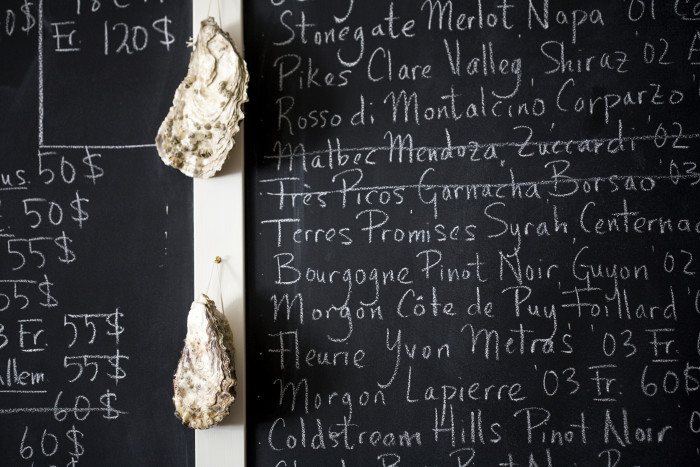 0$
18 L
Fr. 120$*
us 50$
50$
55$
55$
3 Fr. 55$
Allem 55$
60$
60$
Stonegate Merlot Napa '01
Pikes Clare Valley, Shiraz '02
Rosso di Montalcino Carparzo
Malbec Mendoza, Zuccardi '02
Très Picos, Garnacha, Borsao '03
Terres Promises Syrah Centernac
Bourgogne Pinot Noir, Guyon '02
Morgon Côte de Puy, Foillard '0
Fleurie Yvon Metras '03 Fr.
Morgon Lapierre '03 Fr. 60$
Coldstream Hills Pinot Noir '0